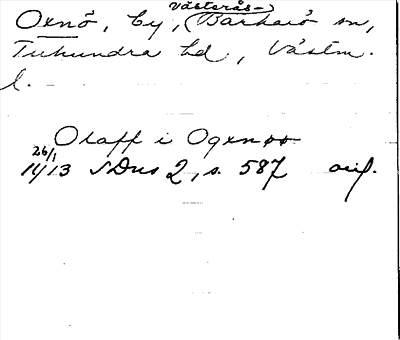 Oxnö, by, (Västerås-) Barkarö sn,
Tuhundra hd, Västm.
l.
Olaff i Ogxnöö
26/1
1413 SDns 2, s. 587 orig.